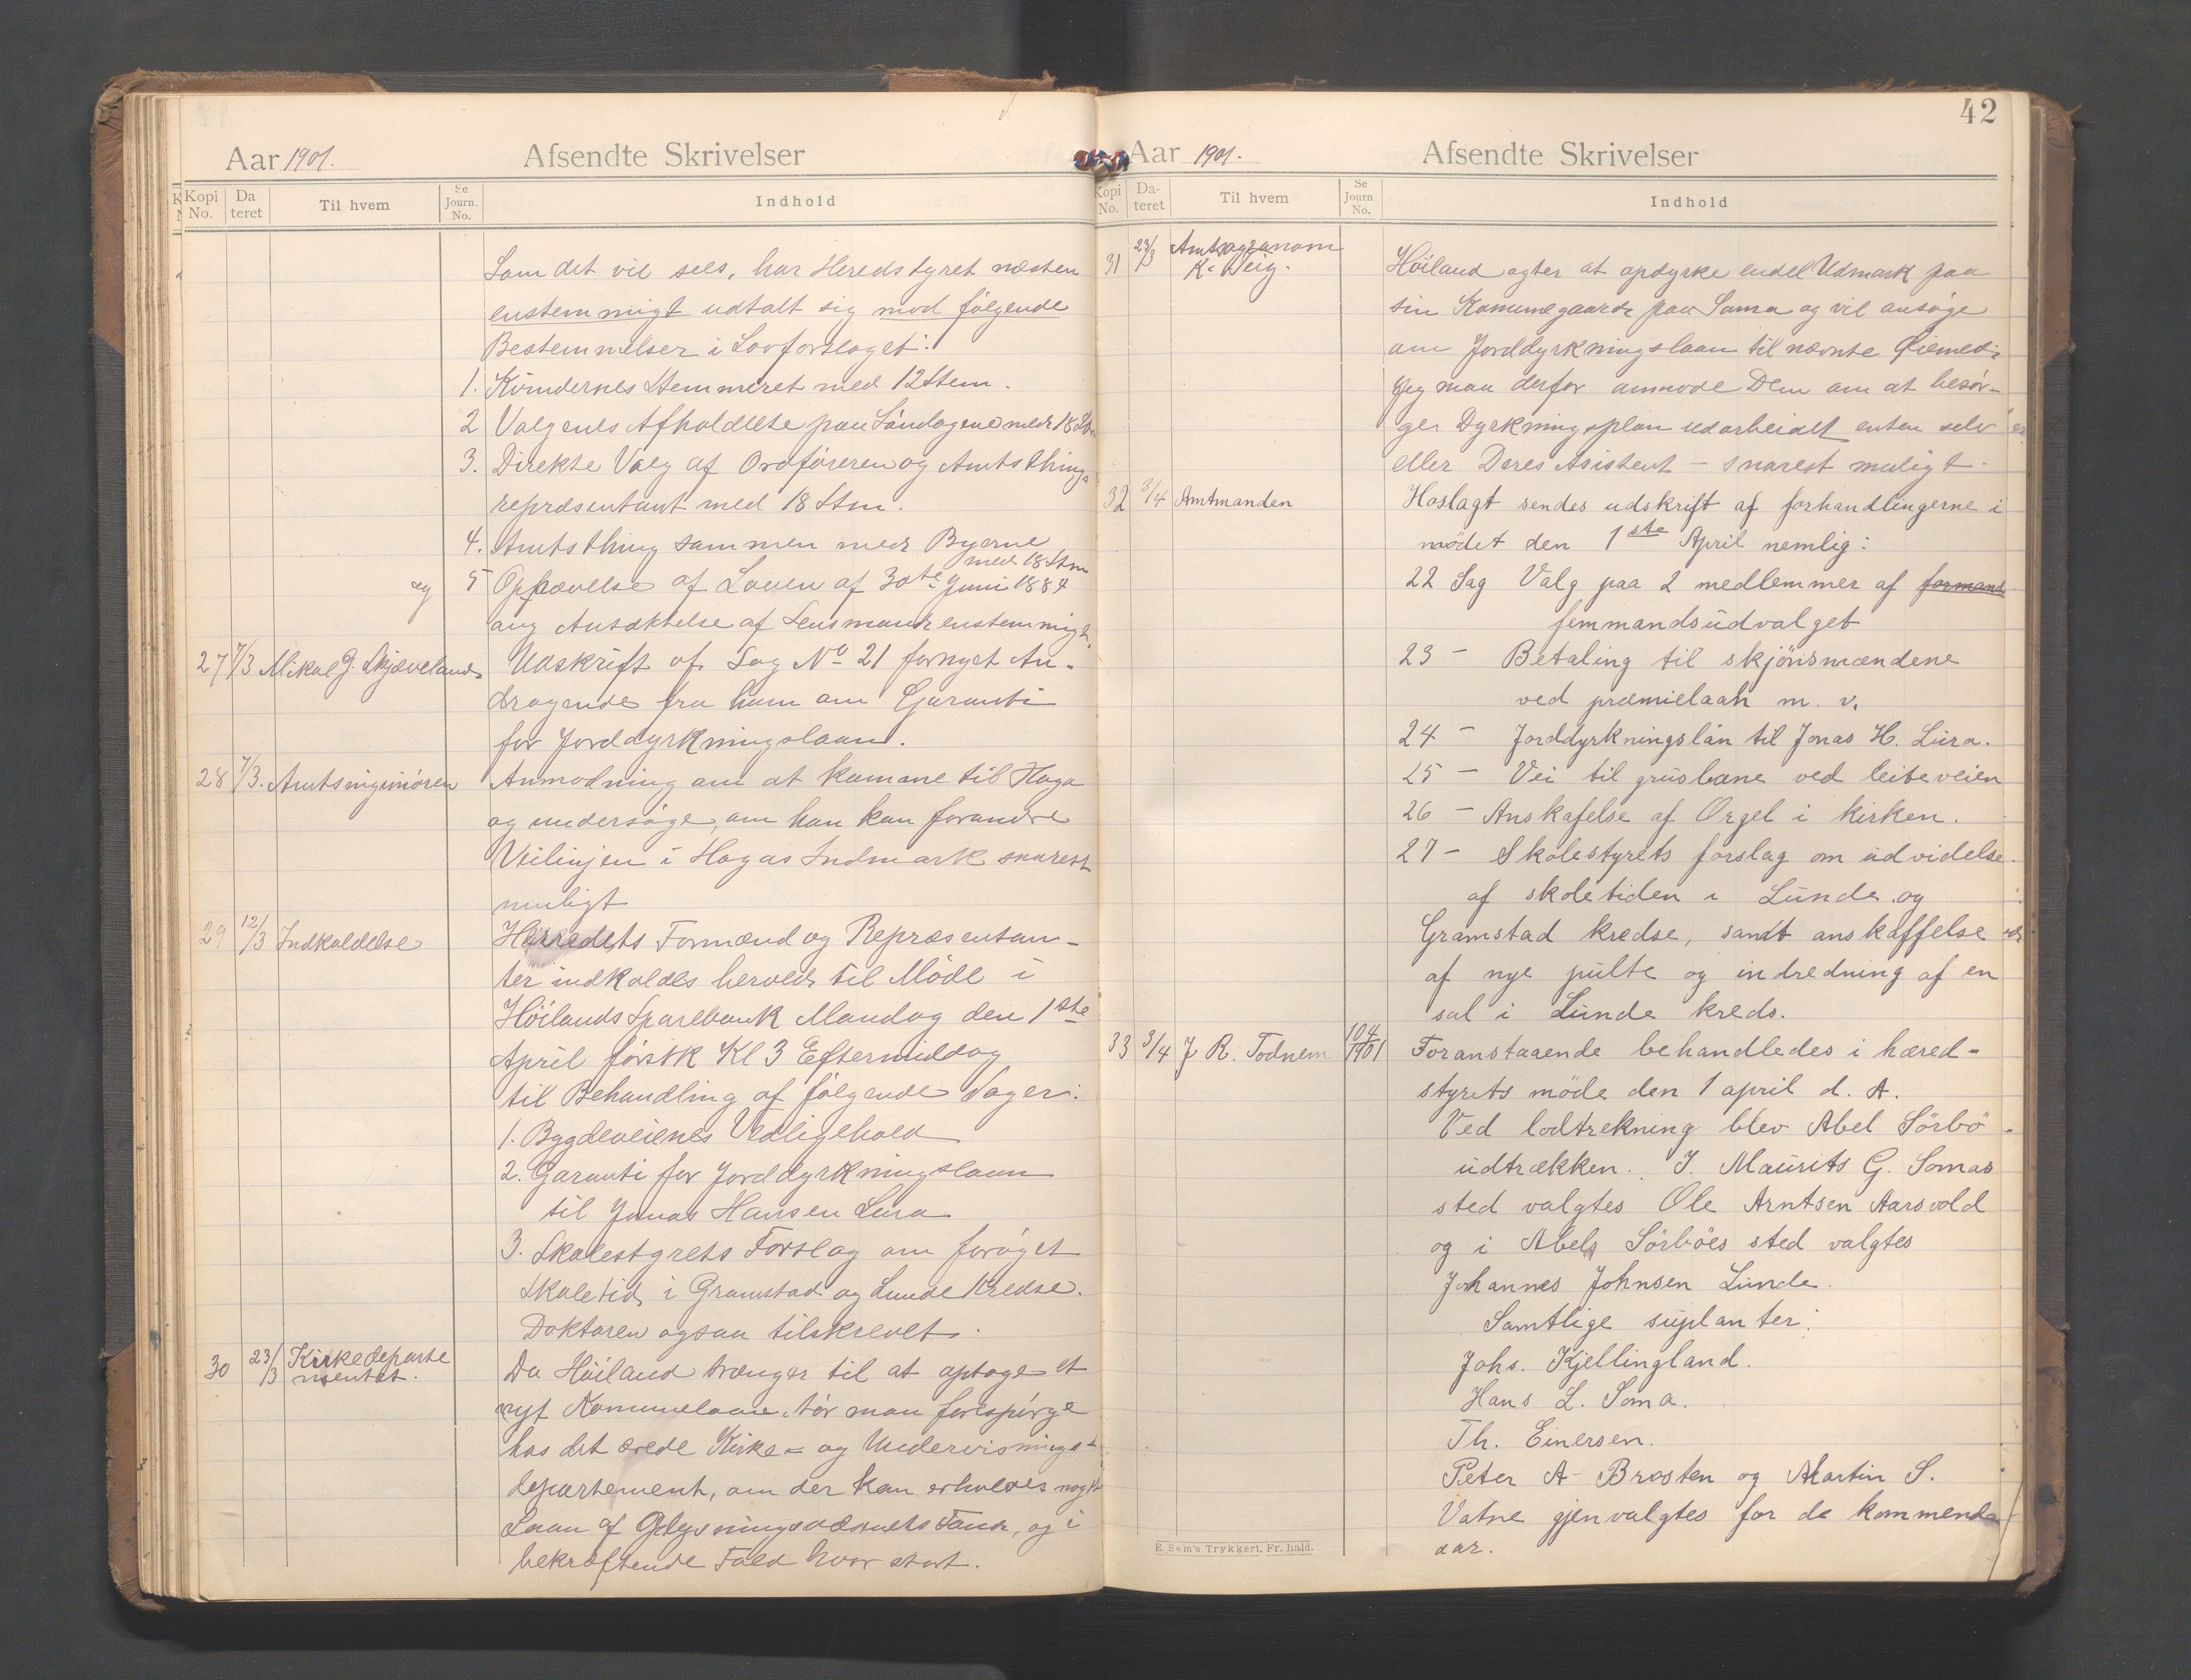 Aar 1901.
Afsendte Skrivelser
Kopi No.
Da teret
Til hvem
Se Journ. No.
Indhold
Som det vil sees, har Heredstyret næsten
enstemmigt udtalt sig mod følgende
Bestemmelser i Lovforslaget:
1. Kvindernes Stemmeret med 12 Stem.
2 Valgenes Afholdelse paa Søndagene med 18 Stm
3. Direkte Valg af Ordføreren og Amtsthings
repræsentant med 18 Stm.
4. Amtsthing sammen med Byerne
med 18 Stm
og 5 Ophævelse af Loven af 30te Juni 1884
ang Ansættelse af Lensmænd enstemmigt
27 7/3 Mikal G. Skjæveland Udskrift af Sag No 21 fornyet An-
dragende fra ham om Garanti
for Jorddyrkningslaan.
28 7/3. Amtsingeniøren Anmodning om at komme til Hoga
og undersøge, om han kan forandre
Veilinjen i Hogas Indmark snarest
muligt
29 12/3 Indkaldelse Herredets Formænd og Repræsentan-
ter indkaldes herved til Møde i
Høilands Sparebank Mandag den 1ste
April førstk Kl 3 Eftermiddag
til Behandling af følgende Sager:
1. Bygdeveienes Vedligehold
2. Garanti for Jorddyrkningslaan
til Jonas Hansen Lura
3. Skolestyrets Forslag om forøget
Skoletid i Gramstad og Lunde Kredse.
Doktoren ogsaa tilskrevet.
30 23/3 Kirkedeparte
mentet. Da Høiland trænger til at optage et
nyt Kommunelaan, tør man forespørge
hos det ærede Kirke- og Undervisnings-
departement, om der kan erholdes noget
Laan af Oplysningsvæsenets Fond, og i
bekræftende Fald hvor stort.
42
Aar 1901.
Afsendte Skrivelser
Kopi No.
Da- teret
Til hvem
Se Journ No.
Indhold
31 23/3 Amtsagronom
K. Høiland agter at opdyrke endel Udmark paa
sin Komunegaard paa Soma og vil ansøge
om Jorddyrkningslaan til nævnte Øiemed.
Jeg maa derfor anmode Dem om at besør-
ger Dyrkningsplan udarbeidet enten selv
eller Deres Asistent - snarest muligt.
32 3/4 Amtmanden Hoslagt sendes udskrift af forhandlingerne i
mødet den 1ste April nemlig:
22 Sag Valg paa 2 medlemmer af formand
femmandsudvalget
23 - Betaling til skjønsmændene
ved præmielaan m. v.
24 - Jorddyrkningslån til Jonas H. Lura.
25 - Vei til grusbane ved leiteveien
26 - Anskafelse af Orgel i kirken.
27 - Skolestyrets forslag om udvidelse
af skoletiden i Lunde og
Gramstad kredse, samt anskaffelse
af nye pulte og indredning af en
sal i Lunde kreds.
33 3/4 J R. Todnem 104/1901 Foranstaaende behandledes i hæred-
styrets møde den 1 april d. A.
Ved lodtrekning blev Abel Sörbö
udtrækken. I. Maurits G. Somas
sted valgtes Ole Arntsen Aarsvold
og i Abels Sörböes sted valgtes
Johannes Johnsen Lunde.
Samtlige suplanter:
Johs. Kjellingland.
Hans L. Soma.
Th. Einersen.
Peter A- Brosten og Martin S.
Vatne gjenvalgtes for de kommende
aar.
E. Sem's Trykkeri, Fr. hald.